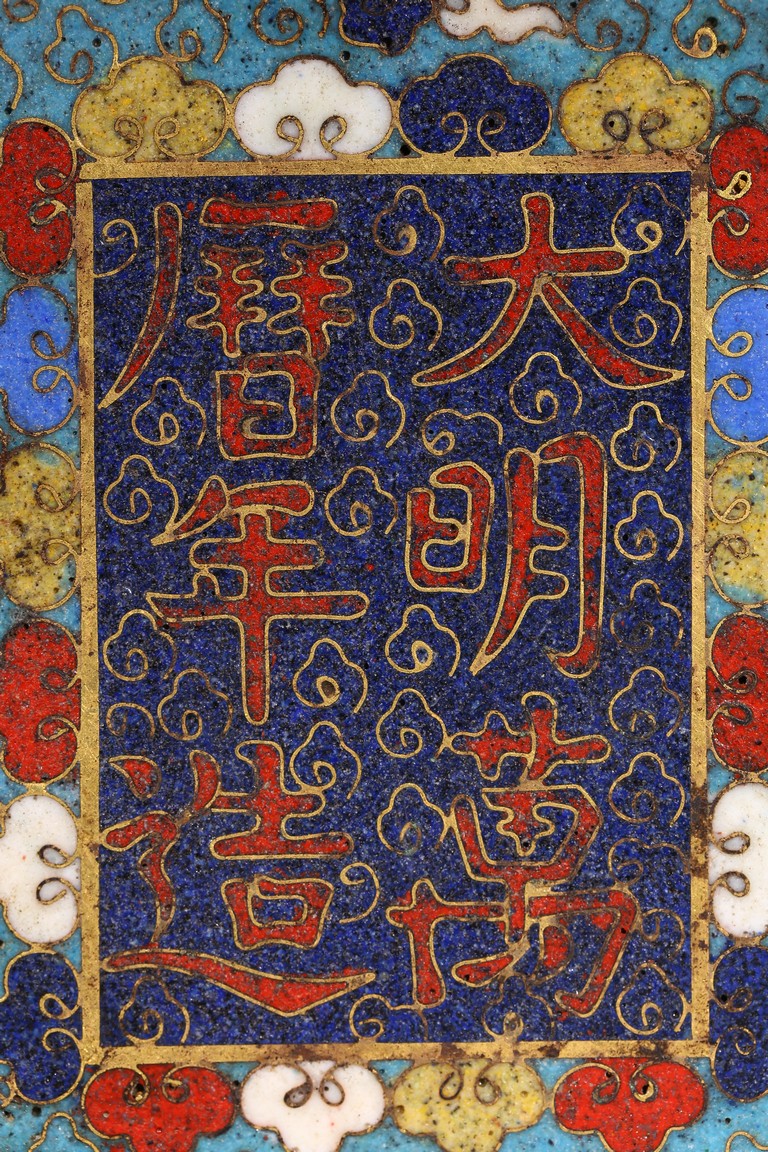 大明萬
曆年造